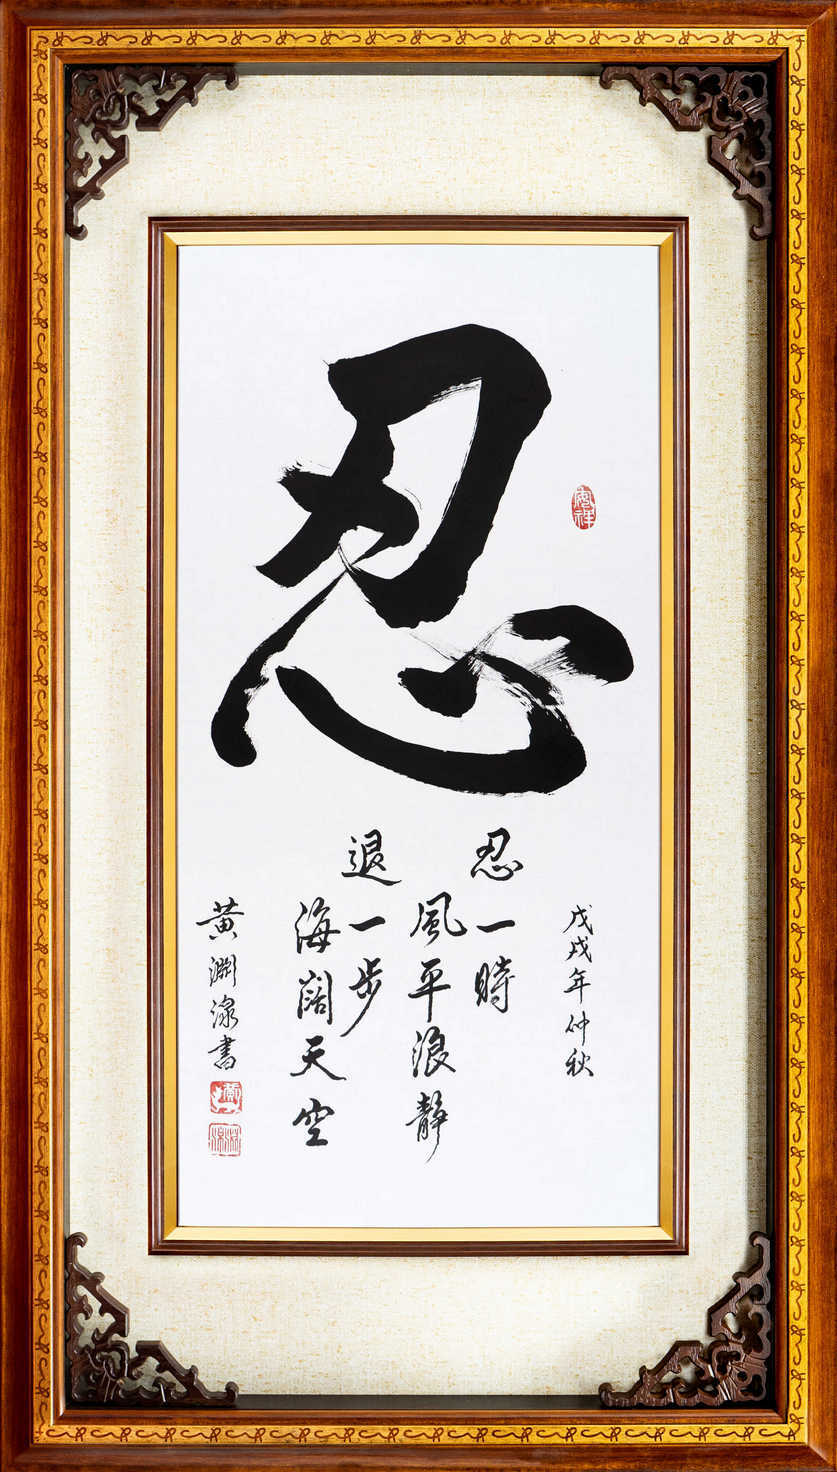 忍
戊戌年仲秋
忍一時
風平浪靜
退一步
海闊天空
黃淵濠書